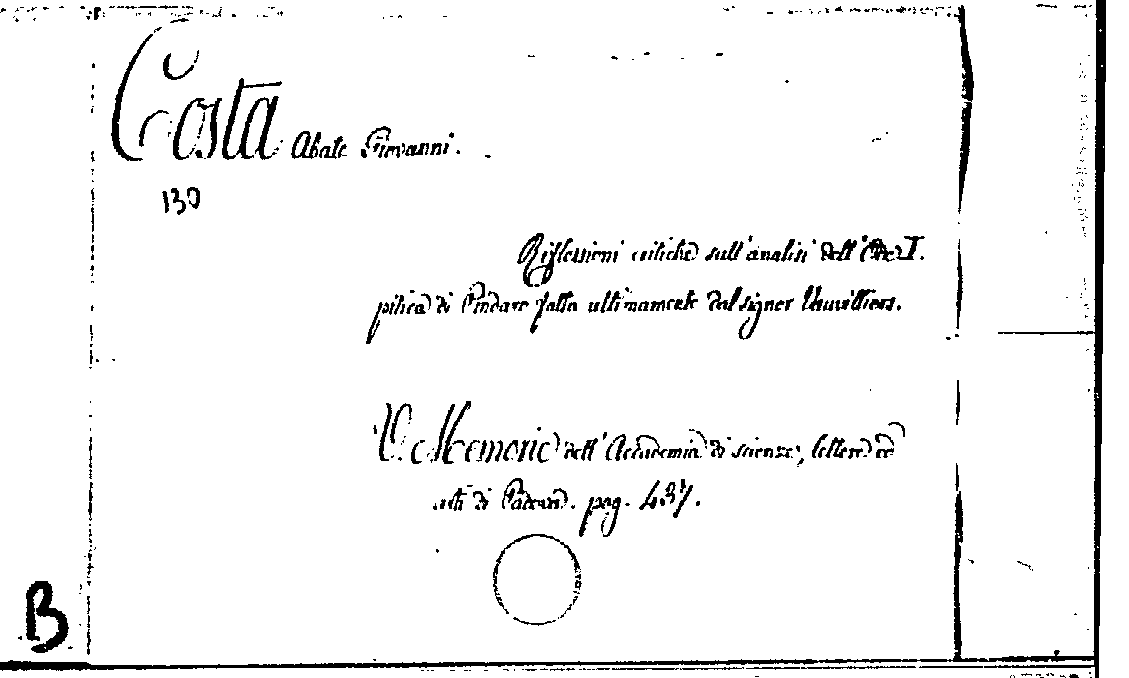 Costa Abate Giovanni.
130
Riflessioni critiche sull'analisi dell'Ode I.
pitica di Pindaro fatta ultimamente dal signor Vauvilliers.
V. Memorie dell'Accademia di scienze, lettere ed
arti di Padova. pag. 437.
B